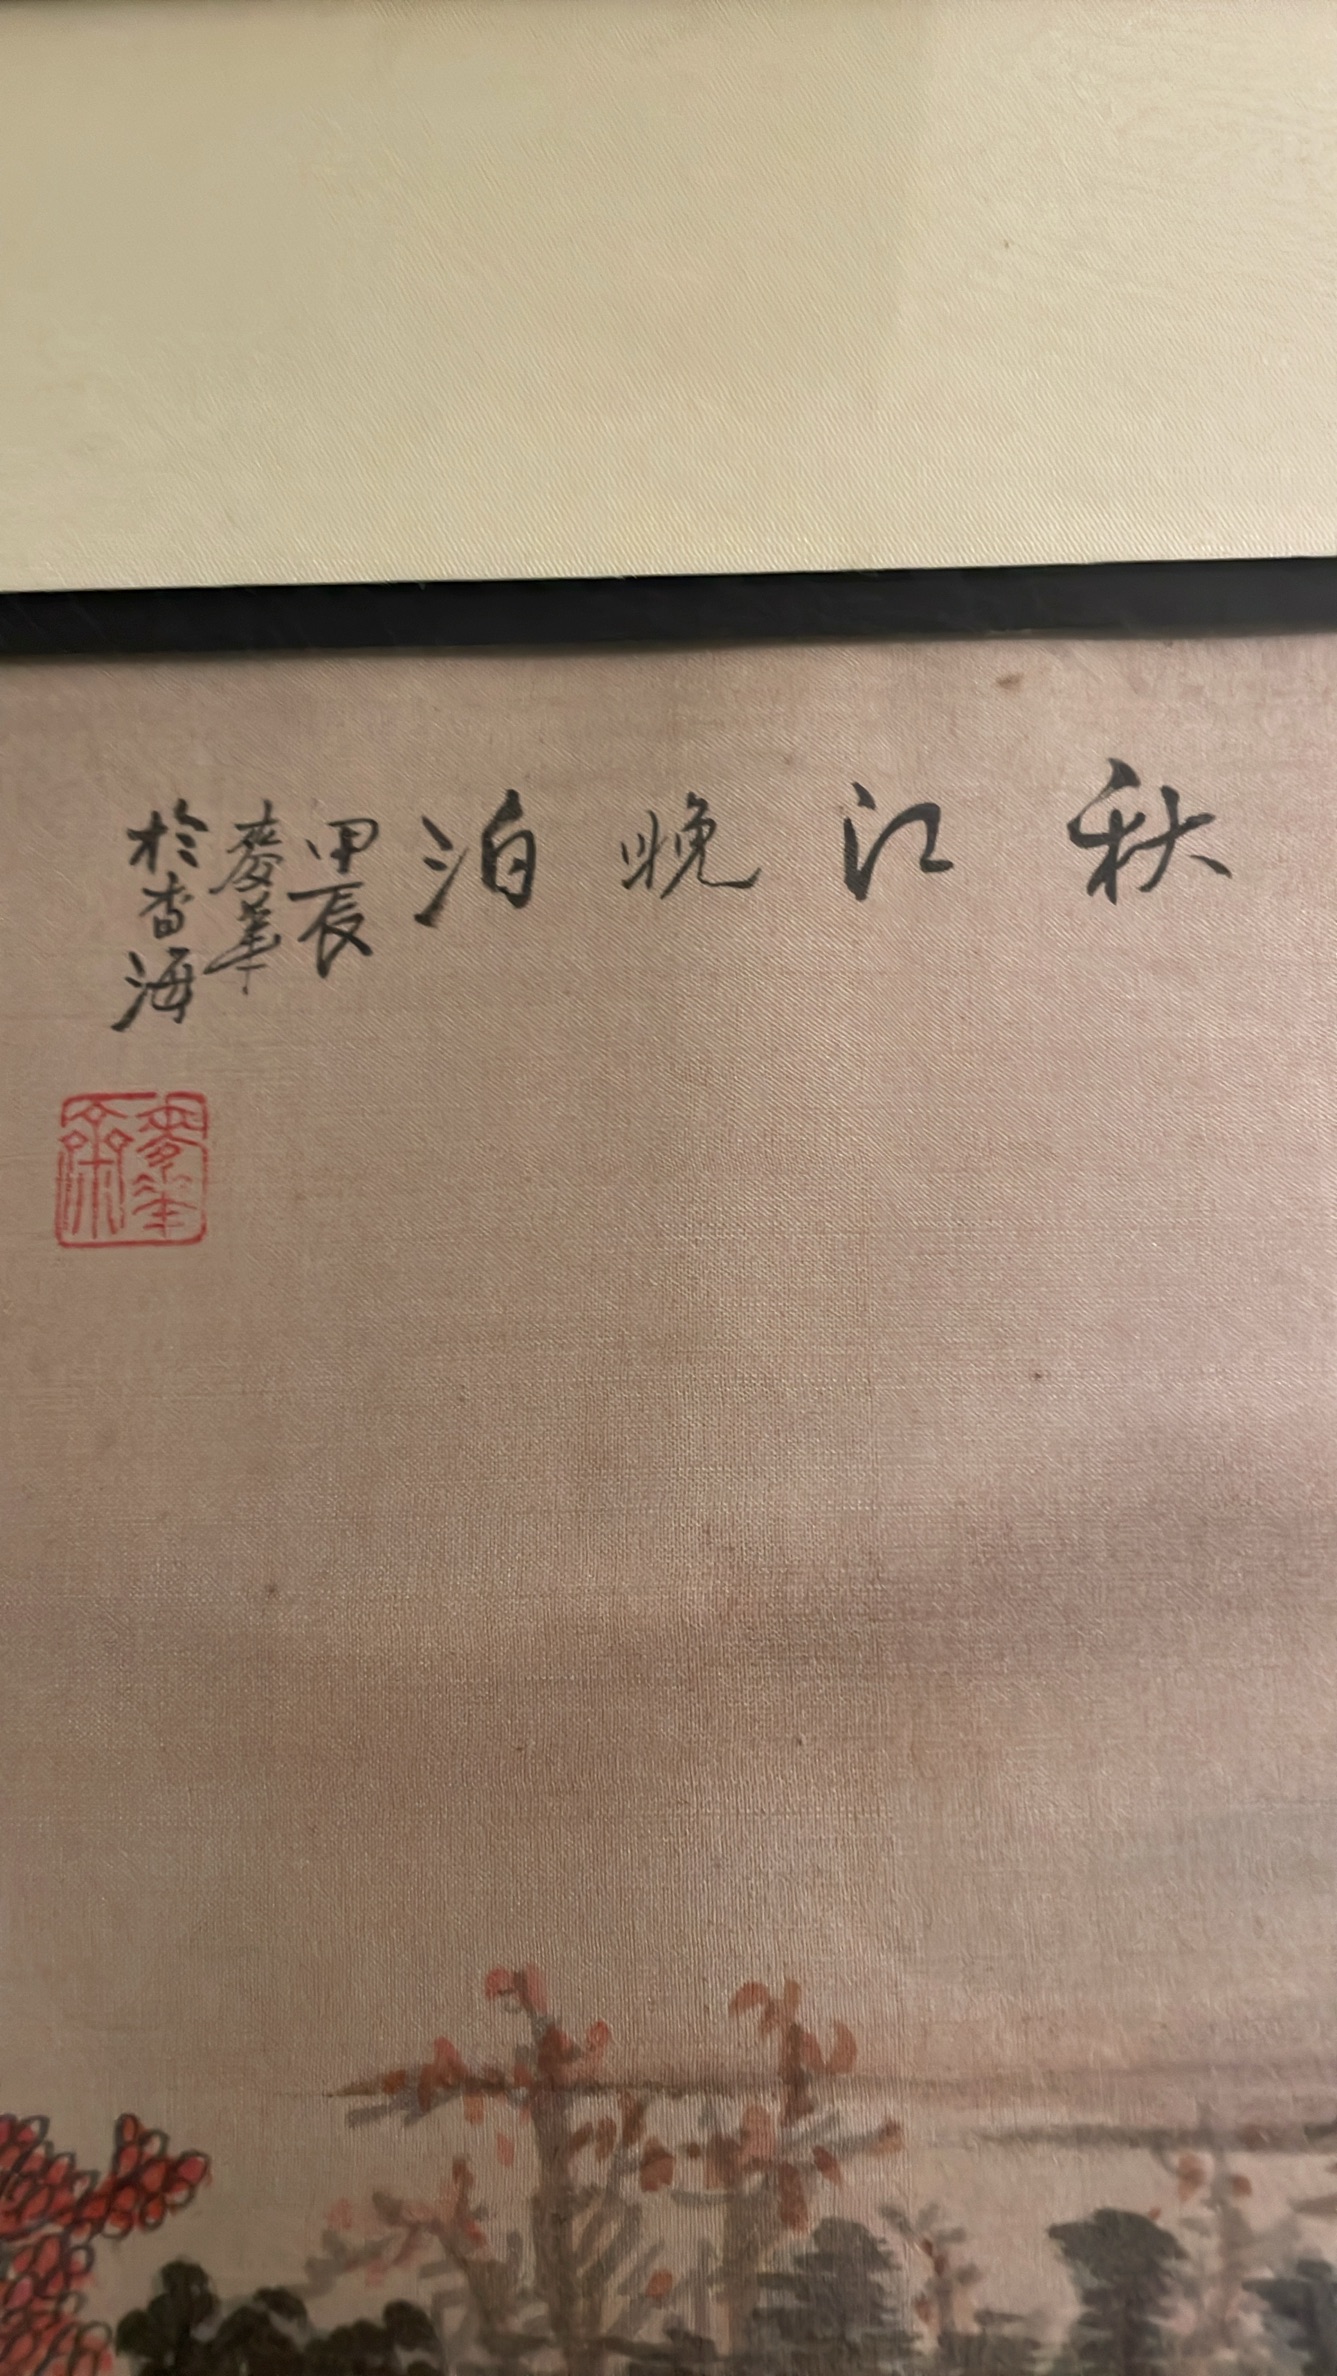 秋江晚泊
甲辰
麥華
於香海
麥華